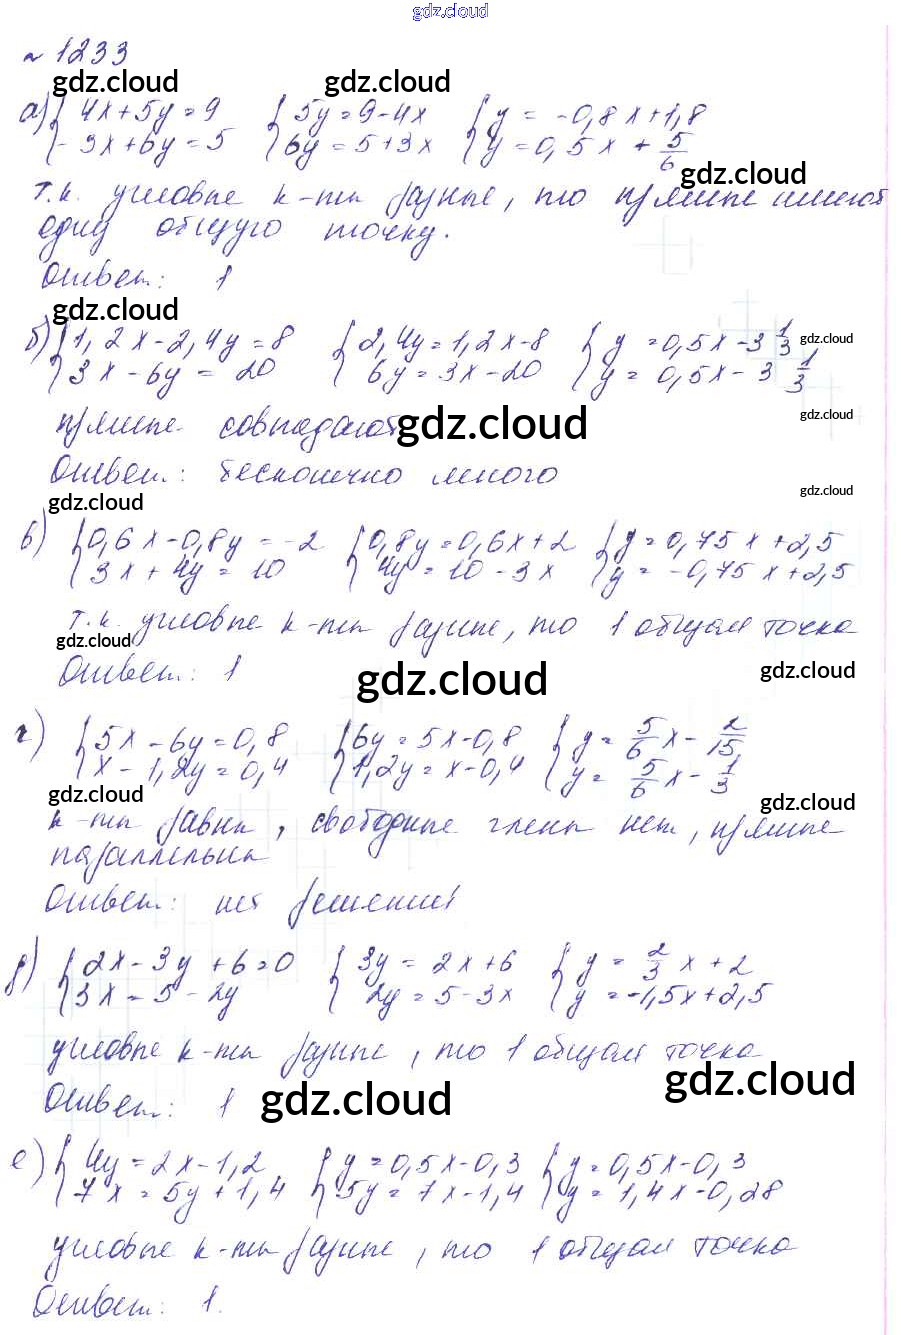 gdz.cloud
~ 1233
gdz.cloud gdz.cloud
а) { 4x+5y=9 { 5y=9-4x { y = -0,8x+1,8
-3x+6y=5 6y=5+3x y=0,5x + 5/6
gdz.cloud
т.к. угловые к-ты разные, то прямые имеют
одну общую точку.
Ответ: 1
gdz.cloud
б) { 1,2x-2,4y=8 { 2,4y=1,2x-8 { y=0,5x-3 1/3
gdz.cloud
3x-6y=20 6y=3x-20 y=0,5x-3 1/3
прямые совпадают
gdz.cloud gdz.cloud
Ответ: бесконечно много
gdz.cloud gdz.cloud
в) { 0,6x-0,8y=-2 { 0,8y=0,6x+2 { y=0,75x+2,5
3x+4y=10 4y=10-3x y=-0,75x+2,5
т.к. угловые к-ты разные, то 1 общая точка
gdz.cloud
Ответ: 1
gdz.cloud gdz.cloud
г) { 5x-6y=0,8 { 6y=5x-0,8 { y=5/6x-2/15
x-1,2y=0,4 1,2y=x-0,4 y=5/6x-1/3
gdz.cloud gdz.cloud
к-ты равны, свободные члены нет, прямые
параллельны
Ответ: нет решений
д) { 2x-3y+6=0 { 3y=2x+6 { y=2/3x+2
3x=5-2y 2y=5-3x y=-1,5x+2,5
угловые к-ты разные, то 1 общая точка
gdz.cloud
Ответ: 1
gdz.cloud
е) { 4y=2x-1,2 { y=0,5x-0,3 { y=0,5x-0,3
7x=5y+1,4 5y=7x-1,4 y=1,4x-0,28
угловые к-ты разные, то 1 общая точка
Ответ: 1.